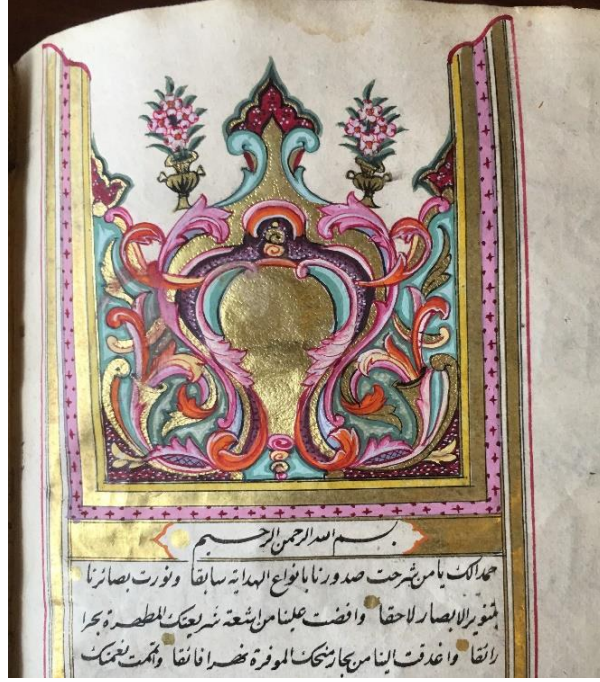 بسم الله الرحمن الرحيم
حمدا لك يا من شرحت صدورنا بانواع الهداية سابقا ونورت بصائرنا
بتنوير الابصار لاحقا وافضت علينا من اشعة شريعتك المطهرة بحرا
رائقا واغدقت الينا من بحار منحك الموفرة نهرا فائقا واتممت نعمتك